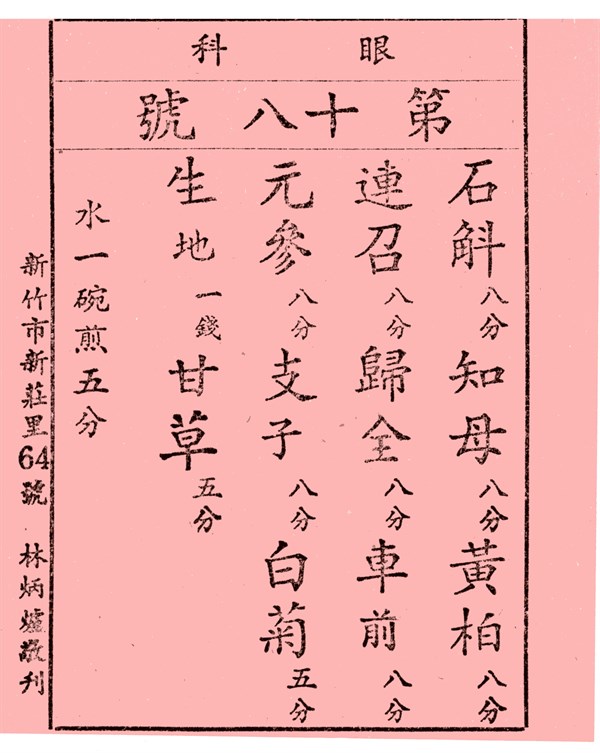 眼科
第十八號
石斛八分 知母八分 黃柏八分
連召八分 歸全八分 車前八分
元參八分 支子八分 白菊五分
生地一錢 甘草五分
水一碗煎五分
新竹市新莊里64號 林炳爐敬刊